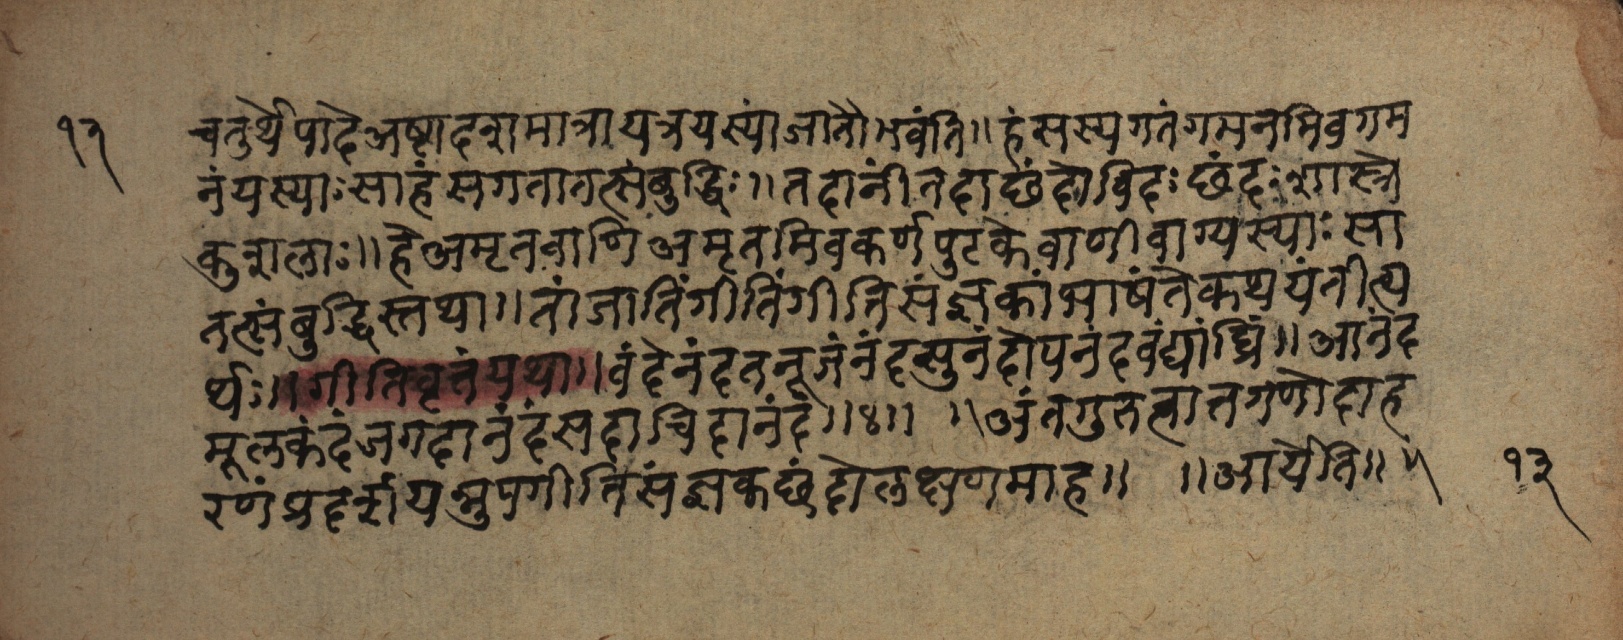 १३ चतुर्थे पादे अष्टादश मात्रा यत्र यस्यां जातौ भवंति ॥ हंसस्य गतं गमनमिव गम
नं यस्याः सा हंसगता तत्संबुद्धिः ॥ तदानीं तदा छंदोविदः छंदः शास्त्रे
कुशलाः ॥ हे अमृतवाणि अमृतमिव कर्णपुटके वाणी वाग्यस्याः सा
तत्संबुद्धिस्तथा ॥ तां जातिं गीतिं गीतिसंज्ञकां भाषंते कथयंतीत्य
र्थः ॥ गीतिवृत्तं यथा ॥ वंदे नंदतनूजं नंदसुनंदोपनंदवंद्यांघ्रिं ॥ आनंद
मूलकंदं जगदानंदं सदा चिदानंदं ॥ ४ ॥ ॥ अंतगुरुत्वात्तगणोदाह
रणं प्रदर्शयन्नुपगीतिसंज्ञकछंदोलक्षणमाह ॥ ॥ आर्येति ॥ ५ १३